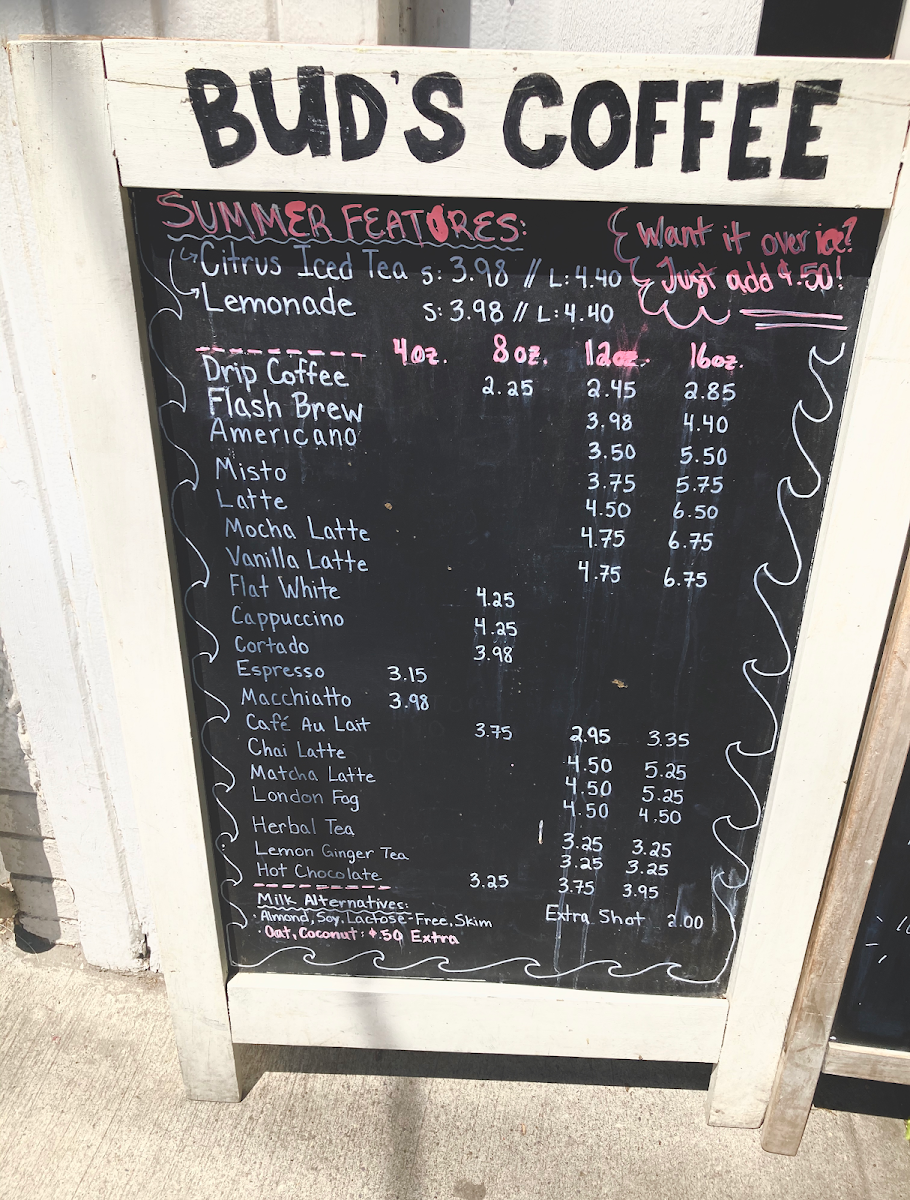 BUD'S COFFEE
SUMMER FEATURES:
Citrus Iced Tea S: 3.98 // L: 4.40
Lemonade S: 3.98 // L: 4.40
Want it over ice?
Just add $.50!
4oz. 8oz. 12oz. 16oz.
Drip Coffee 2.25 2.45 2.85
Flash Brew 3.98 4.40
Americano 3.50 5.50
Misto 3.75 5.75
Latte 4.50 6.50
Mocha Latte 4.75 6.75
Vanilla Latte 4.75 6.75
Flat White 4.25
Cappuccino 4.25
Cortado 3.98
Espresso 3.15
Macchiatto 3.98
Café Au Lait 3.75 2.95 3.35
Chai Latte 4.50 5.25
Matcha Latte 4.50 5.25
London Fog 4.50 4.50
Herbal Tea 3.25 3.25
Lemon Ginger Tea 3.25 3.25
Hot Chocolate 3.25 3.75 3.95
Milk Alternatives:
· Almond, Soy, Lactose-Free, Skim
· Oat, Coconut: $.50 Extra
Extra Shot 2.00